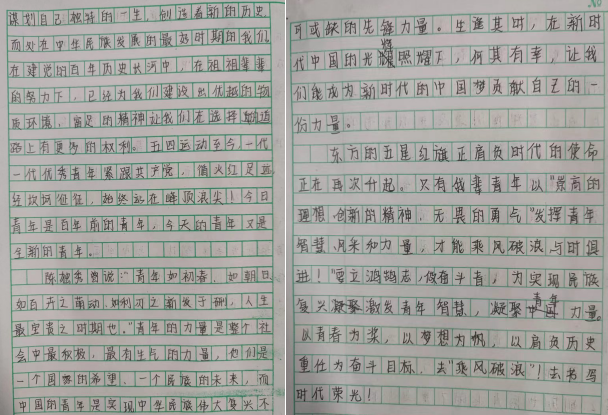 谋划自己独特的一生，创造着新的历史
而处在中华民族发展的最好时期的我们
在建党的百年历史长河中，在祖祖辈辈
的努力下，已经为我们建设出优越的物
质环境，富足的精神让我们在选择
路上有更多的权利。五四运动至今，一代
一代优秀青年紧跟共产党，
始终站在 顶浪尖！今日
青年是百年前的青年，今天的青年又是
全新的青年。
陈独秀曾说："青年如初春，如朝日
如百卉之萌动，如利刃之新发于硎，人生
最宝贵之时期也。"青年的力量是整个社
会中最积极、最有生气的力量，他们是
一个国家的希望，一个民族的未来，而
中国的青年是实现中华民族伟大复兴不
可或缺的先锋力量。生逢其时，在新时
代中国的光耀照耀下，何其有幸，让我
们能成为新时代的中国梦贡献自己的一
份力量。
东方的五星红旗正肩负时代的使命
正在再次升起。只有我辈青年以"崇高的
理想、创新的精神，无畏的勇气"发挥青年
智慧、风采和力量，才能乘风破浪与时俱
进！"要立鸿鹄志，做奋斗者，为实现民族
复兴凝聚激发青年智慧，凝聚青年力量。
以青春为桨，以梦想为帆，以肩负历史
重任为奋斗目标，去"乘风破浪"！去书写
时代荣光！